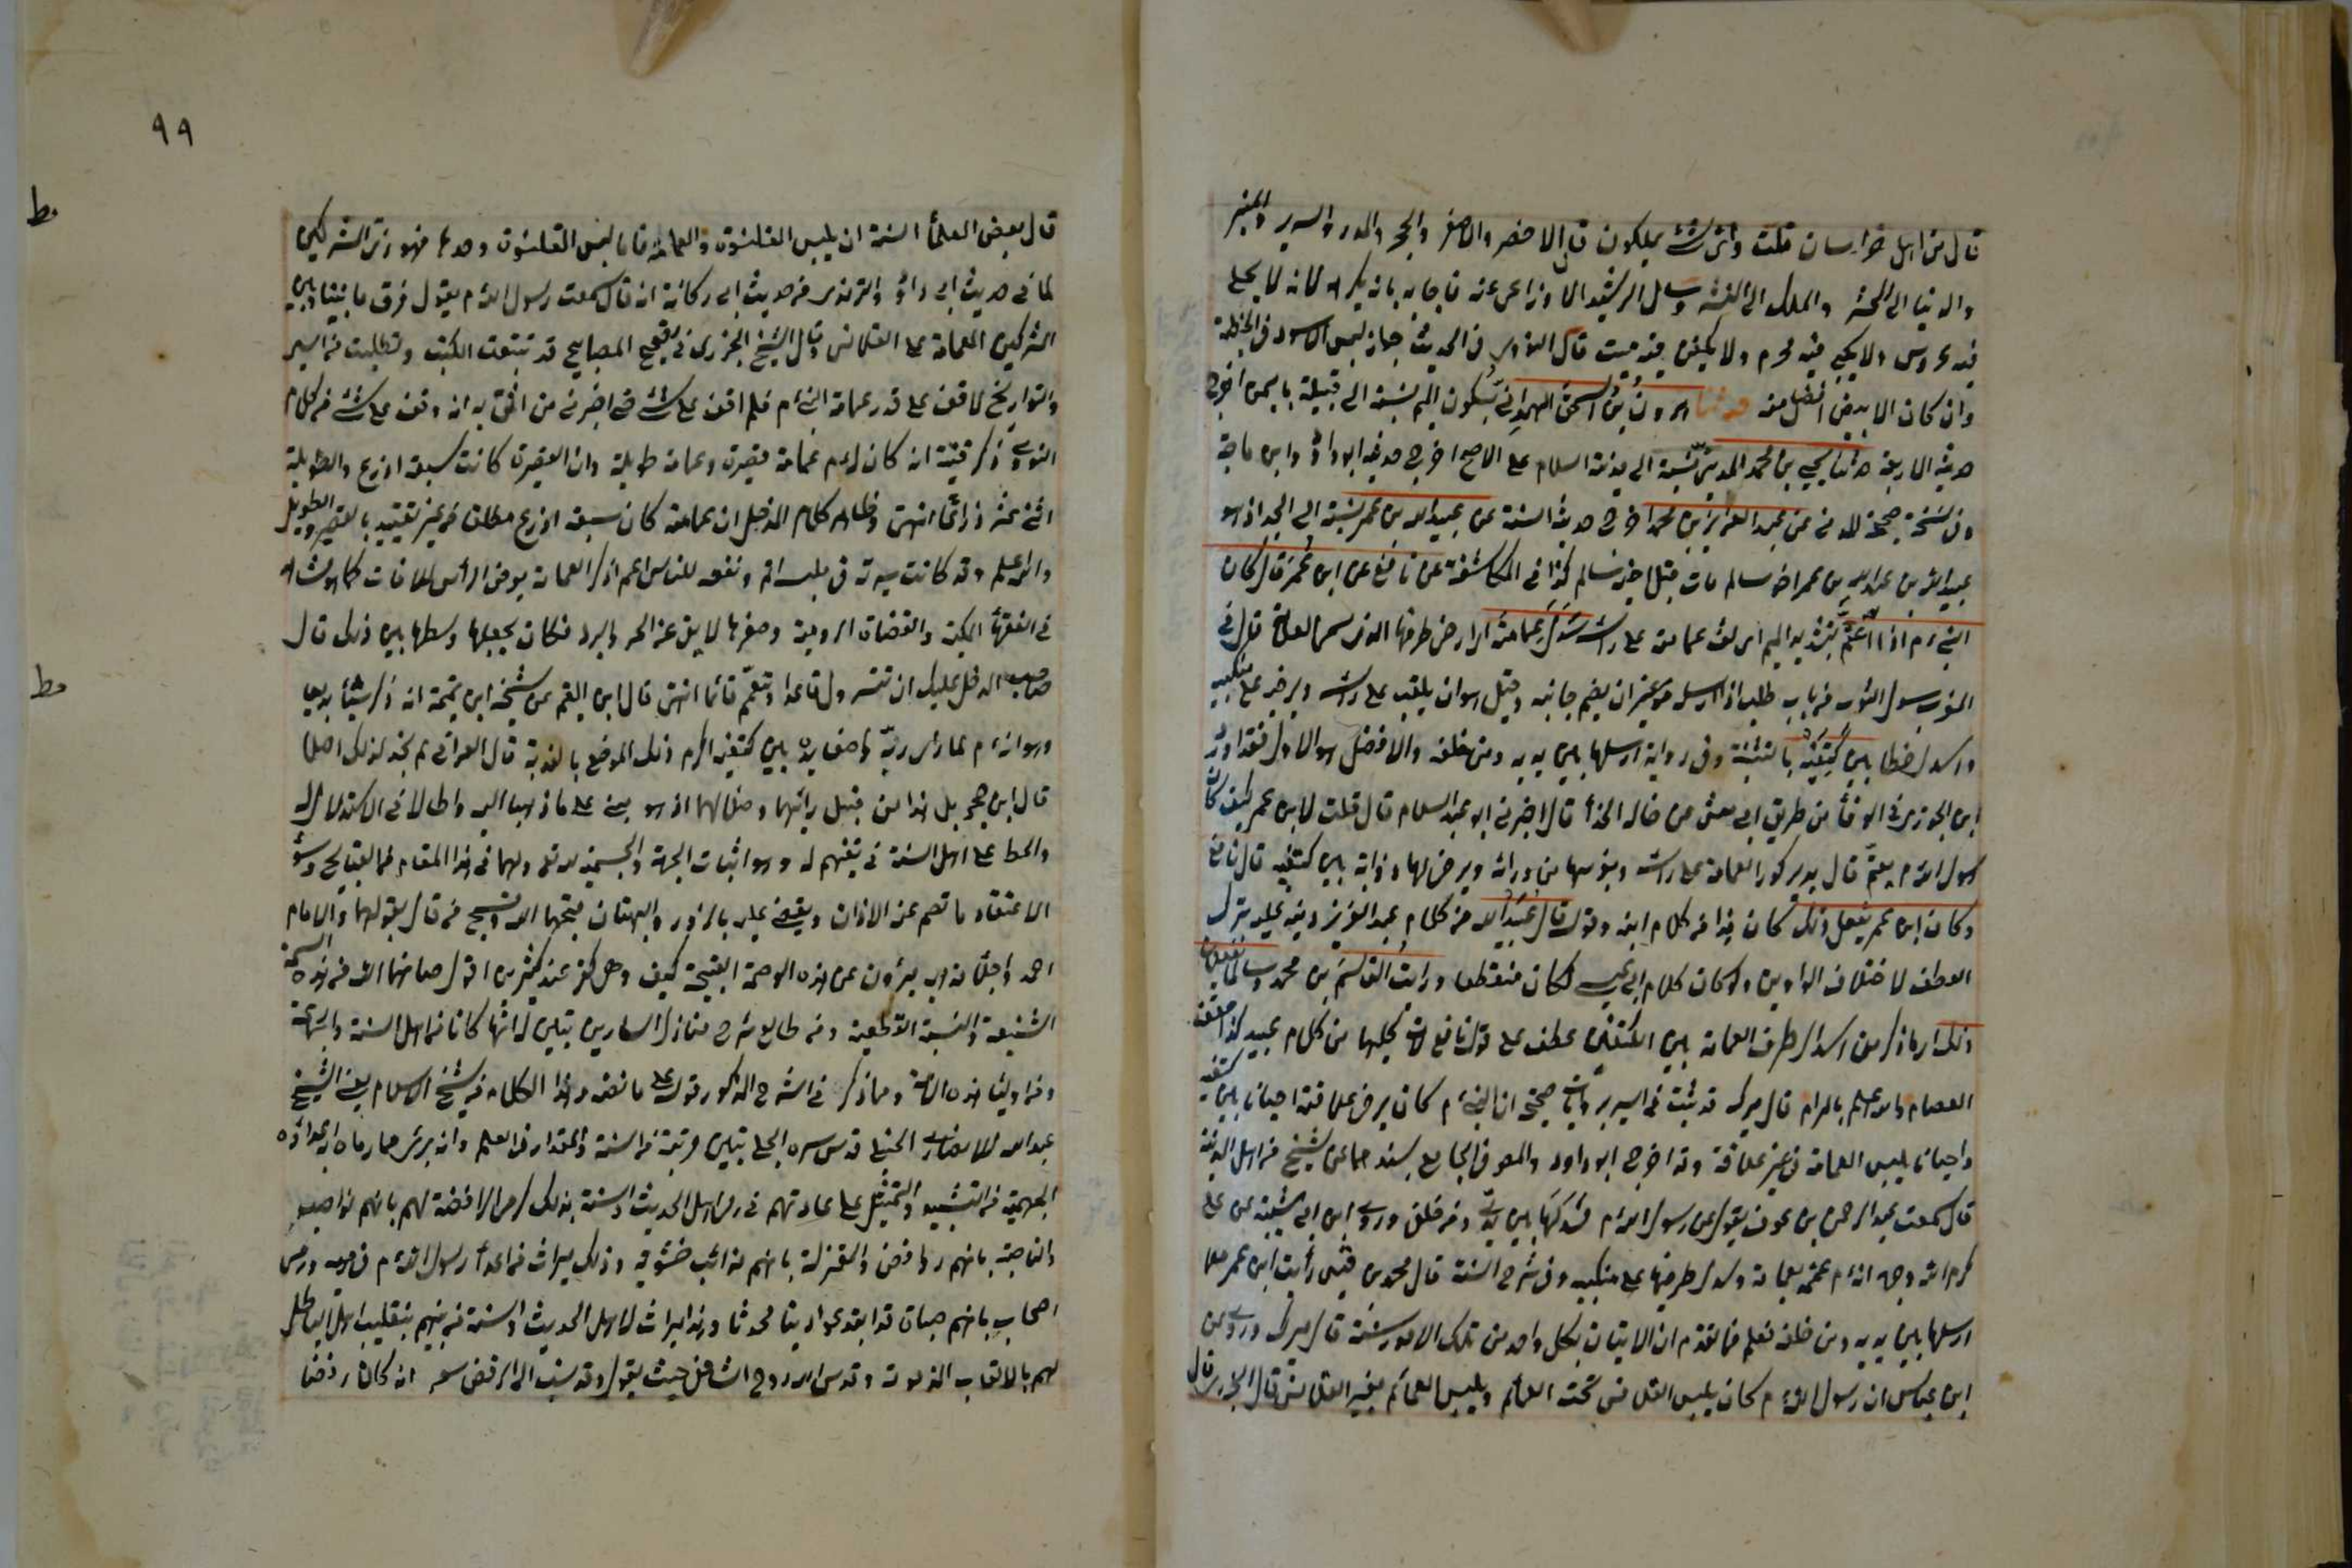 قال من اهل خراسان قلت وأى شئ يملكون قال الاخضر والاصفر والحجر والمدر والسرير والمنبر
والدنيا الى المحشر والملك الى المنشر وسأل الرشيد الاوزاعى عنه فاجابه بانه يكره لانه لا يجلى
فيه عروس ولا يلبى فيه محرم ولا يكفن فيه ميت قال النووى فى الحديث جواز لبس الاسود فى الخطبة
وان كان الابيض افضل منه حدثنا هرون بن اسحق الهمدانى بسكون الميم نسبة الى قبيلة باليمن اخرج
حديثه الاربعة حدثنا يحيى بن محمد المدينى نسبة الى مدينة السلام على الاصح اخرج حديثه ابوداؤد وابن ماجة
وفى نسخة صحيحة المدنى عن عبد العزيز بن محمد اخرج حديثه الستة عن عبيد الله بن عمر نسبة الى الجد اذ هو
عبيد الله بن عبدالله بن عمر اخو سالم مات قبل اخيه سالم كذا فى المكاشفة عن نافع عن ابن عمر قال كان
النبى م اذا اعتم بتشديد الميم اى لف عمامته على رأسه سدل عمامته اى ارخى طرفها الذى يسمى العلاقة قال فى
المغرب سدل الثوب من باب طلب اذا ارسله من غير ان يضم جانبيه وقيل هو ان يلقيه على رأسه ويرخيه على منكبيه
واسدل خطا بين كتفيه بالتثنية وفى رواية ارسلها بين يديه ومن خلفه والافضل هو الاول فقد اورد
ابن الجوزى فى الوفأ من طريق ابى معشر عن خالد الحذأ قال اخبرنى ابو عبد السلام قال قلت لابن عمر كيف كان
رسول الله م يعتم قال يدير كور العمامة على رأسه ويغرسها من ورائه ويرخى لها ذؤابة بين كتفيه قال نافع
وكان ابن عمر يفعل ذلك كان هذا من كلام ابنه وقوله قال عبيد الله من كلام عبد العزيز وفيه عليه بترك
العطف لاختلاف الراويين ولو كان كلام ابى عيسى لكان منقطعا ورأيت القاسم بن محمد وسالما يفعلان
ذلك اى ما ذكر من اسدال طرف العمامة بين الكتفين عطف على قول نافع لانه بجملتها من كلام عبيد كذا حققه
العصام والله اعلم بالمرام قال ميرك قد ثبت فى السير بروايات صحيحة ان النبى م كان يرخى علاقته احيانا بين كتفيه
واحيانا يلبس العمامة من غير علاقة وقد اخرج ابوداود والمصنف فى الجامع بسندهما عن شيخ من اهل المدينة
قال سمعت عبد الرحمن بن عوف يقول عمنى رسول الله م فسدلها بين يدى ومن خلفى وروى ابن ابى شيبة عن على
كرم الله وجهه انه م عممه بعمامة وسدل طرفيها على منكبيه وفى شرح السنة قال محمد بن قيس رأيت ابن عمر معتما
ارسلها بين يديه ومن خلفه فعلم مما تقدم ان الاتيان بكل واحد من تلك الامور سنة قال ميرك وروى عن
ابن عباس ان رسول الله م كان يلبس القلانس تحت العمائم ويلبس العمائم بغير القلانس قال الجزرى قال
٩٩
قال بعض العلمأ السنة ان يلبس القلنسوة والعمامة فاما لبس القلنسوة وحدها فهو زى المشركين
لما فى حديث ابى داؤد والترمذى من حديث ابى ركانة انه قال سمعت رسول الله م يقول فرق ما بيننا وبين
المشركين العمامة على القلانس وقال الشيخ الجزرى فى تصحيح المصابيح قد تتبعت الكتب وتطلبت من السير
والتواريخ لاقف على قدر عمامة النبى م فلم اقف على شئ حتى اخبرنى من اثق به انه وقف على شئ من كلام
النووى ذكر فيه انه كان له م عمامة قصيرة وعمامة طويلة وان القصيرة كانت سبعة اذرع والطويلة
اثنى عشر ذراعا انتهى وظاهر كلام المدخل ان عمامته كان سبعة اذرع مطلقا من غير تقييد بالقصير والطويل
والله اعلم وقد كانت سيرته فى ملبسه اتم ونفعه للناس اعم اذ كبر العمامة يعرض الرأس للافات كما هو مشاهد
فى الفقهأ المكية والقضاة الرومية وصغرها لا يقى عن الحر والبرد فكان يجعلها وسطا بين ذلك قال
صاحب المدخل عليك ان تتسرول قاعدا وتتعمم قائما انتهى قال ابن القيم عن شيخه ابن تيمية انه ذكر شيئا بديعا
وهو انه م لما رأى ربه واضعا يده بين كتفيه اكرم ذلك الموضع بالعذبة قال العراقى لم نجد لذلك اصلا
قال ابن حجر بل هذا من قبيل رأيهما وضلالهما اذ هو مبنى على ما ذهبا اليه واطالا فى الاستدلال له
والحط على اهل السنة فى نفيهم له وهو اثبات الجهة والجسمية لله تعالى ولهما فى هذا المقام من القبائح وسوء
الاعتقاد ما تصم عنه الاذان ويقضى عليه بالزور والبهتان قبحهما الله وقبح من قال بقولهما والامام
احمد واجلأ مذهبه مبرؤن عن هذه الوصمة القبيحة كيف وهى كفر عند كثيرين اقول صانهما الله من هذه السمة
الشنيعة والنسبة الفظيعة ومن طالع شرح منازل السائرين تبين له انهما كانا من اهل السنة والجماعة
ومن اوليأ هذه الامة ومما ذكر فى الشرح المذكور قوله على ما نصه وهذا الكلام من شيخ الاسلام يعنى الشيخ
عبد الله الانصارى الحنبلى قدس سره الجلى يبين مرتبته من السنة ومقداره فى العلم وانه برئ مما رماه به اعداؤه
الجهمية من التشبيه والتمثيل على عادتهم فى رمى اهل الحديث والسنة بذلك كرمى الرافضة لهم بانهم نواصب
والناصبة بانهم روافض والمعتزلة بانهم نوائب حشوية وذلك ميراث من اعدأ رسول الله م فى رميه ورمى
اصحابه بانهم صباة قد ابتدعوا دينا محدثا وهذا ميراث لاهل الحديث والسنة من نبيهم بتلقيب اهل الباطل
لهم بالالقاب المذمومة وقدس الله روح الشافعى حيث يقول وقد نسب الى الرفض شعر ان كان رفضا